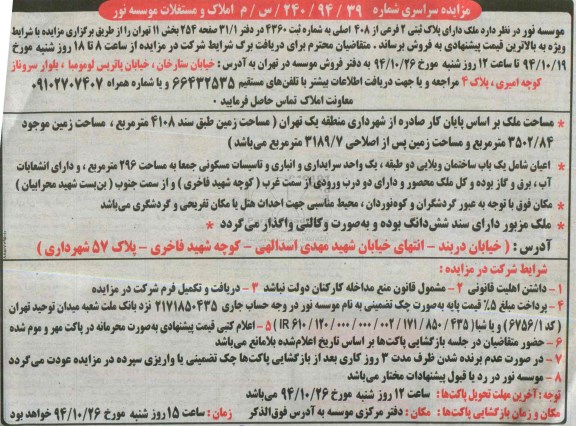 مزایده سراسری شماره ۳۹/ ۹۴/ ۲۴۰/ س/ م املاک و مستغلات موسسه نور
موسسه نور در نظر دارد ملک دارای پلاک ثبتی ۲ فرعی از ۴۰۸ اصلی به شماره ثبت ۴۳۶۰ در دفتر ۳۱/۱ صفحه ۲۵۴ بخش ۱۱ تهران را از طریق برگزاری مزایده با شرایط
ویژه به بالاترین قیمت پیشنهادی به فروش برساند . متقاضیان محترم برای دریافت برگ شرایط شرکت در مزایده از ساعت ۸ تا ۱۸ روز شنبه مورخ
۹۴/۱۰/۱۹ تا ساعت ۱۲ روز شنبه مورخ ۹۴/۱۰/۲۶ به دفتر فروش موسسه در تهران به آدرس : خیابان ستارخان ، خیابان پاتریس لومومبا ، بلوار سروناز
کوچه امیری ، پلاک ۴ مراجعه و یا جهت دریافت اطلاعات بیشتر با تلفن‌های مستقیم ۶۶۴۳۲۵۳۵ و یا شماره همراه ۰۹۱۰۲۷۰۷۴۰۷
معاونت املاک تماس حاصل فرمایید .
* مساحت ملک بر اساس پایان کار صادره از شهرداری منطقه یک تهران ( مساحت زمین طبق سند ۴۱۰۸ مترمربع ، مساحت زمین موجود
۳۵۰۲/۸۴ مترمربع و مساحت زمین پس از اصلاحی ۳۱۸۹/۷ مترمربع می‌باشد )
* اعیان شامل یک باب ساختمان ویلایی دو طبقه ، یک واحد سرایداری و انباری و تاسیسات مسکونی جمعا به مساحت ۲۹۶ مترمربع ، و دارای انشعابات
آب ، برق و گاز بوده و کل ملک محصور و دارای دو درب ورودی از سمت غرب ( کوچه شهید فاخری ) و از سمت جنوب ( بن‌بست شهید محرابیان )
* مکان فوق با توجه به عبور گردشگران و کوه‌نوردان ، محیط مناسبی جهت احداث هتل یا مکان تفریحی و گردشگری می‌باشد
* ملک مزبور دارای سند شش‌دانگ بوده و به‌صورت وکالتی واگذار می‌گردد *
آدرس : ( خیابان دربند – انتهای خیابان شهید مهدی اسدالهی – کوچه شهید فاخری – پلاک ۵۷ شهرداری )
شرایط شرکت در مزایده :
۱– داشتن اهلیت قانونی ۲– مشمول قانون منع مداخله کارکنان دولت نباشد ۳– دریافت و تکمیل فرم شرکت در مزایده
۴– پرداخت مبلغ ۵٪ قیمت پایه به‌صورت چک تضمینی به نام موسسه نور در وجه حساب جاری ۲۱۷۱۸۵۰۴۳۵ نزد بانک ملت شعبه میدان توحید تهران
( کد ۶۷۵۶/۱ ) و یا شبا ( IR ۶۱۰ / ۱۲۰ / ۰۰۰ / ۰۰۰ / ۰۰۲ / ۱۷۱ / ۸۵۰ / ۴۳۵ ) ۵– اعلام کتبی قیمت پیشنهادی به‌صورت محرمانه در پاکت مهر و موم شده
۶– حضور متقاضیان در جلسه بازگشایی پاکت‌ها بر اساس تاریخ اعلام‌شده بلامانع می‌باشد
۷– در صورت عدم برنده شدن ظرف مدت ۳ روز کاری بعد از بازگشایی پاکت‌ها چک تضمینی یا واریزی سپرده در مزایده عودت می‌گردد
۸– موسسه نور در رد یا قبول پیشنهادات مختار می‌باشد
توجه : آخرین مهلت تحویل پاکت‌ها : ساعت ۱۲ روز شنبه مورخ ۹۴/۱۰/۲۶ می‌باشد
مکان و زمان بازگشایی پاکت‌ها : مکان : دفتر مرکزی موسسه به آدرس فوق‌الذکر زمان : ساعت ۱۵ روز شنبه مورخ ۹۴/۱۰/۲۶ خواهد بود